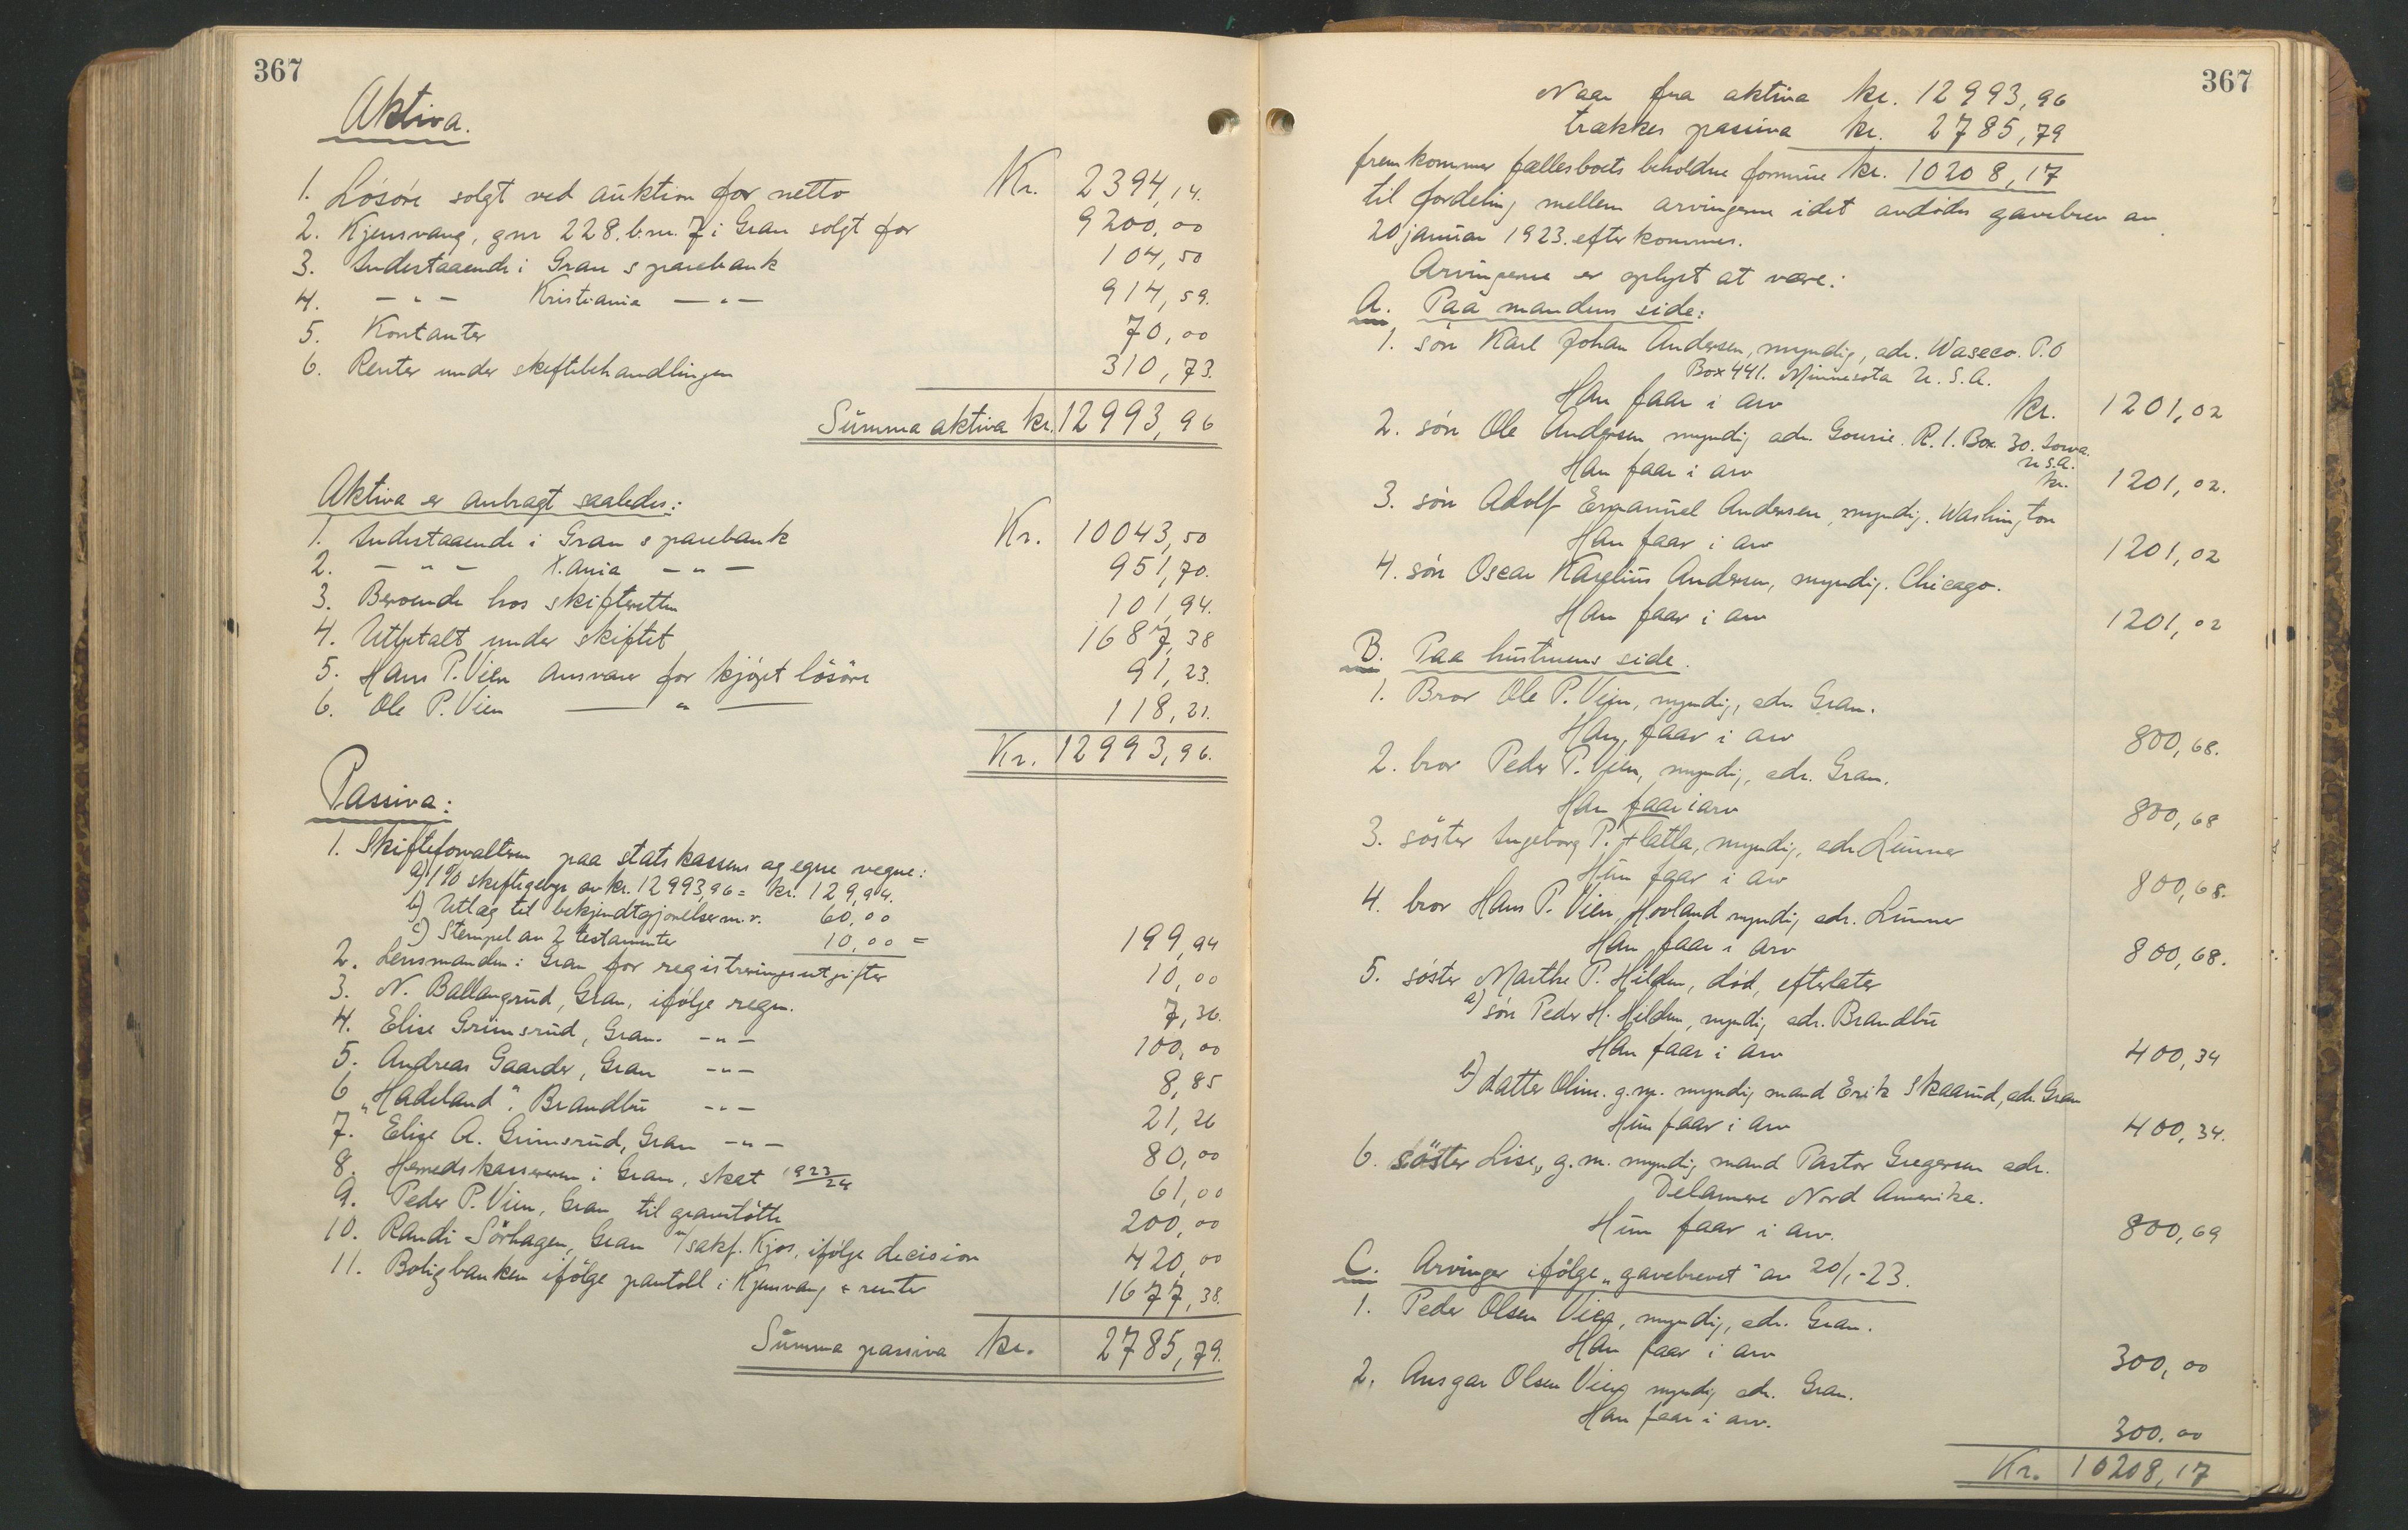 367
Aktiva.
1. Løsøre solgt ved auktion for netto Kr. 2394,14.
2. Kjensvang, gnr 228. b.nr. 7 i Gran solgt for 9200,00
3. Indestaaende i Gran sparebank 104,50
4. — " — Kristiania — " — 914,59.
5. Kontanter 70,00
6. Renter under skiftebehandlingen 310,73.
Summa aktiva kr. 12993,96
Aktiva er anbragt saaledes:
1. Indestaaende i Gran sparebank Kr. 10043,50
2. — " — X.ania — " — 951,70.
3. Beroende hos skifteretten 101,94.
4. Utbetalt under skiftet 1687,38
5. Hans P. Vien ansvarer for kjøpt løsøre 91,23.
6. Ole P. Vien — " — 118,21.
Kr. 12993,96.
Passiva:
1. Skifteforvalteren paa statskassens og egne vegne:
a) 1% skiftegebyr av kr. 12993,96 = kr. 129,94.
b) Utlæg til bekjendtgjørelser m.v. 60,00
c) Stempel av 2 testamenter 10,00 = 199,94
2. Lensmanden i Gran for registreringsutgifter 10,00
3. N. Ballangrud, Gran, ifølge regn. 7,36.
4. Elise Grimsrud, Gran. — " — 100,00
5. Andreas Gaarder, Gran — " — 8,85
6 "Hadeland". Brandbu — " — 21,26
7. Elise A. Grimsrud, Gran — " — 80,00
8. Herredskassereren i Gran, skat 1923/24 61,00
9. Peder P. Vien, Gran til gravstøtte 200,00
10. Randi Sørhagen, Gran v/sakf. Kjos, ifølge decision 420,00
11. Boligbanken ifølge pantobl. i Kjensvang + renter 1677,38.
Summa passiva kr. 2785,79.
367
Naar fra aktiva kr. 12993,96
trækkes passiva kr. 2785,79
fremkommer fællesboets beholdne formue kr. 10208,17
til fordeling mellem arvingerne idet avdødes gavebrev av
20 januar 1923. efterkommes.
Arvingerne er oplyst at være:
A. Paa mandens side:
1. søn Karl Johan Andersen, myndig, adr. Waseco. P.O
Box 441. Minnesota U.S.A.
Han faar i arv kr. 1201,02
2. søn Ole Andersen myndig adr. Gowrie. R.1. Box. 30. Iowa.
U.S.A.
Han faar i arv kr. 1201,02.
3. søn Adolf Emanuel Andersen, myndig. Washington
Han faar i arv 1201,02
4. søn Oscar Karelius Andersen, myndig. Chicago.
Han faar i arv 1201,02
B. Paa hustruens side.
1. Bror Ole P. Vien, myndig, adr. Gran.
Han faar i arv 800,68.
2. bror Peder P. Vien, myndig, adr. Gran.
Han faar i arv 800,68
3. søster Ingeborg P. Flatla, myndig, adr. Lunner
Hun faar i arv 800,68.
4. bror Hans P. Vien, Hovland myndig adr. Lunner
Han faar i arv 800,68.
5. søster Marthe P. Hilden, død, efterlater
a) søn Peder H. Hilden, myndig adr. Brandbu
Han faar i arv 400,34
b) datter Oline. g.m. myndig mand Erik Skaarud, adr. Gran
Hun faar i arv 400,34.
6. søster Lise, g.m. myndig mand Pastor Gregersen adr.
Delamere Nord Amerika.
Hun faar i arv. 800,69
C. Arvinger ifølge "gavebrevet" av 20/1-23.
1. Peder Olsen Vien, myndig, adr. Gran.
Han faar i arv 300,00
2. Ansgar Olsen Vien myndig adr. Gran.
Han faar i arv. 300,00
Kr. 10208,17